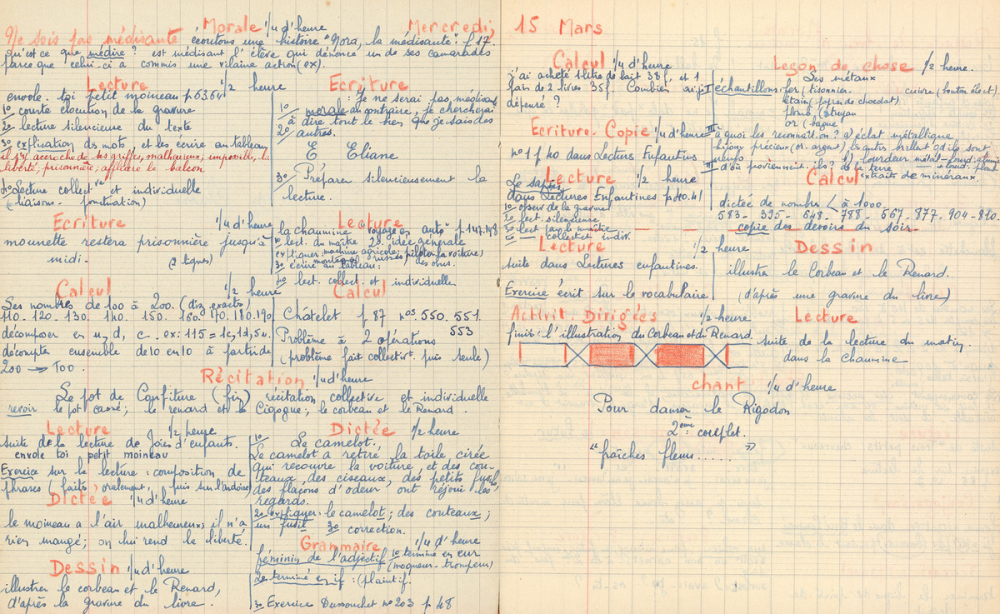 Morale 1/4 d'heure Mercredi,
Ne sois pas médisante écoutons une histoire "Nora, la médisante": p 17.
qu'est ce que médire? est médisant l'élève qui dénonce un de ses camarades
parce que celui-ci a commis une vilaine action (ex).
Lecture 1/2 heure
envole-toi petit moineau p 63.64
1o/ courte élocution de la gravure
2o/ lecture silencieuse du texte
3o/ explication des mots et les écrire au tableau
liberté, prisonnière, le balcon
4o Lecture collect.ve et individuelle
(liaisons - ponctuation)
Ecriture
: Je ne serai pas médisant
1o/ morale au contraire, je chercherai
à dire tout le bien que je sais des
2o/ autres.
E Eliane
3o/ Préparer silencieusement la
lecture.
Ecriture 1/4 d'heure
mounette restera prisonnière jusqu'à
midi. (2 lignes)
Lecture
la chaumine voyage en auto p 147.148
1o lect. du maître 2o/ idée générale
3o/ écrire au tableau:
4o lect. collect. et individuelle
Calcul 1/2 heure
Les nombres de 100 à 200. (diz. exacte)
110. 120. 130. 140. 150. 160. 170. 180. 190
décomposer en u, d, c. ex: 115 = 1c, 1d, 5u.
décompte ensemble de 10 en 10 à partir de
200 → 100.
Calcul
Châtelet p 87 nos 550. 551.
553
Problème à 2 opérations
(problème fait collectivt. puis seule)
Récitation 1/4 d'heure
Le pot de Confiture (fin) récitation collective et individuelle
revoir le pot cassé; le renard et la Cigogne; le corbeau et le Renard.
Lecture 1/2 heure
suite de la lecture de Joies d'enfants.
envole toi petit moineau
Exercice sur la lecture: composition de
phrases (faits oralement, puis sur l'ardoise)
Dictée 1/4 d'heure
le moineau a l'air malheureux; il n'a
rien mangé; on lui rend la liberté.
Dessin 1/4 d'heure
illustrer le corbeau et le Renard,
d'après la gravure du livre.
Dictée 1/2 heure
1o/ Le camelot.
Le camelot a retiré la toile cirée
qui recouvre la voiture, et des cou-
teaux, des ciseaux, des petits fusils,
des flacons d'odeur ont réjoui les
regards.
2o expliquer: le camelot; des couteaux;
un fusil 3o correction.
Grammaire 1/4 d'heure
féminin de l'adjectif 1o terminé en eur
(moqueur - trompeur)
2o terminé en if: (plaintif.
3o Exercice Dussouchet no 203 p 48
15 Mars
Calcul 1/4 d'heure
J'ai acheté 1 litre de lait 38f, et 1
pain de 2 livres 35f. Combien ai-je
dépensé?
Ecriture-Copie 1/4 d'heure
no 1 p 40 dans Lecture Enfantines
Lecture 1/2 heure
dans Lectures Enfantines p 40.41
1o observ de la gravure
2o lect. silencieuse
3o lect par le maître
4o collect et indiv.
Lecture 1/2 heure
suite dans Lectures enfantines.
Exercice écrit sur le vocabulaire
Activit Dirigées 1/2 heure
finir: l'illustration du corbeau et du Renard.
Leçon de chose 1/2 heure.
Les métaux
I échantillons: fer (tisonnier. cuivre (bouton élect).
étain (papier de chocolat)
plomb (tuyau
or (bague
II à quoi les reconnaît-on? a) éclat métallique
bijoux précieux (or. argent), les autres brillent qd ils sont
neufs b) lourdeur
III d'où proviennent-ils? de la terre
extraits de minéraux.
Calcul
dictée de nombre < à 1000.
583 - 395 - 648 - 788 - 567 - 877 - 904 - 890.
copie des devoirs du soir -
Dessin
illustrer le Corbeau et le Renard.
(d'après une gravure du livre)
Lecture
suite de la lecture du matin.
dans la Chaumine
chant 1/4 d'heure
Pour danser le Rigodon
2ème couplet.
"fraîches fleurs......"